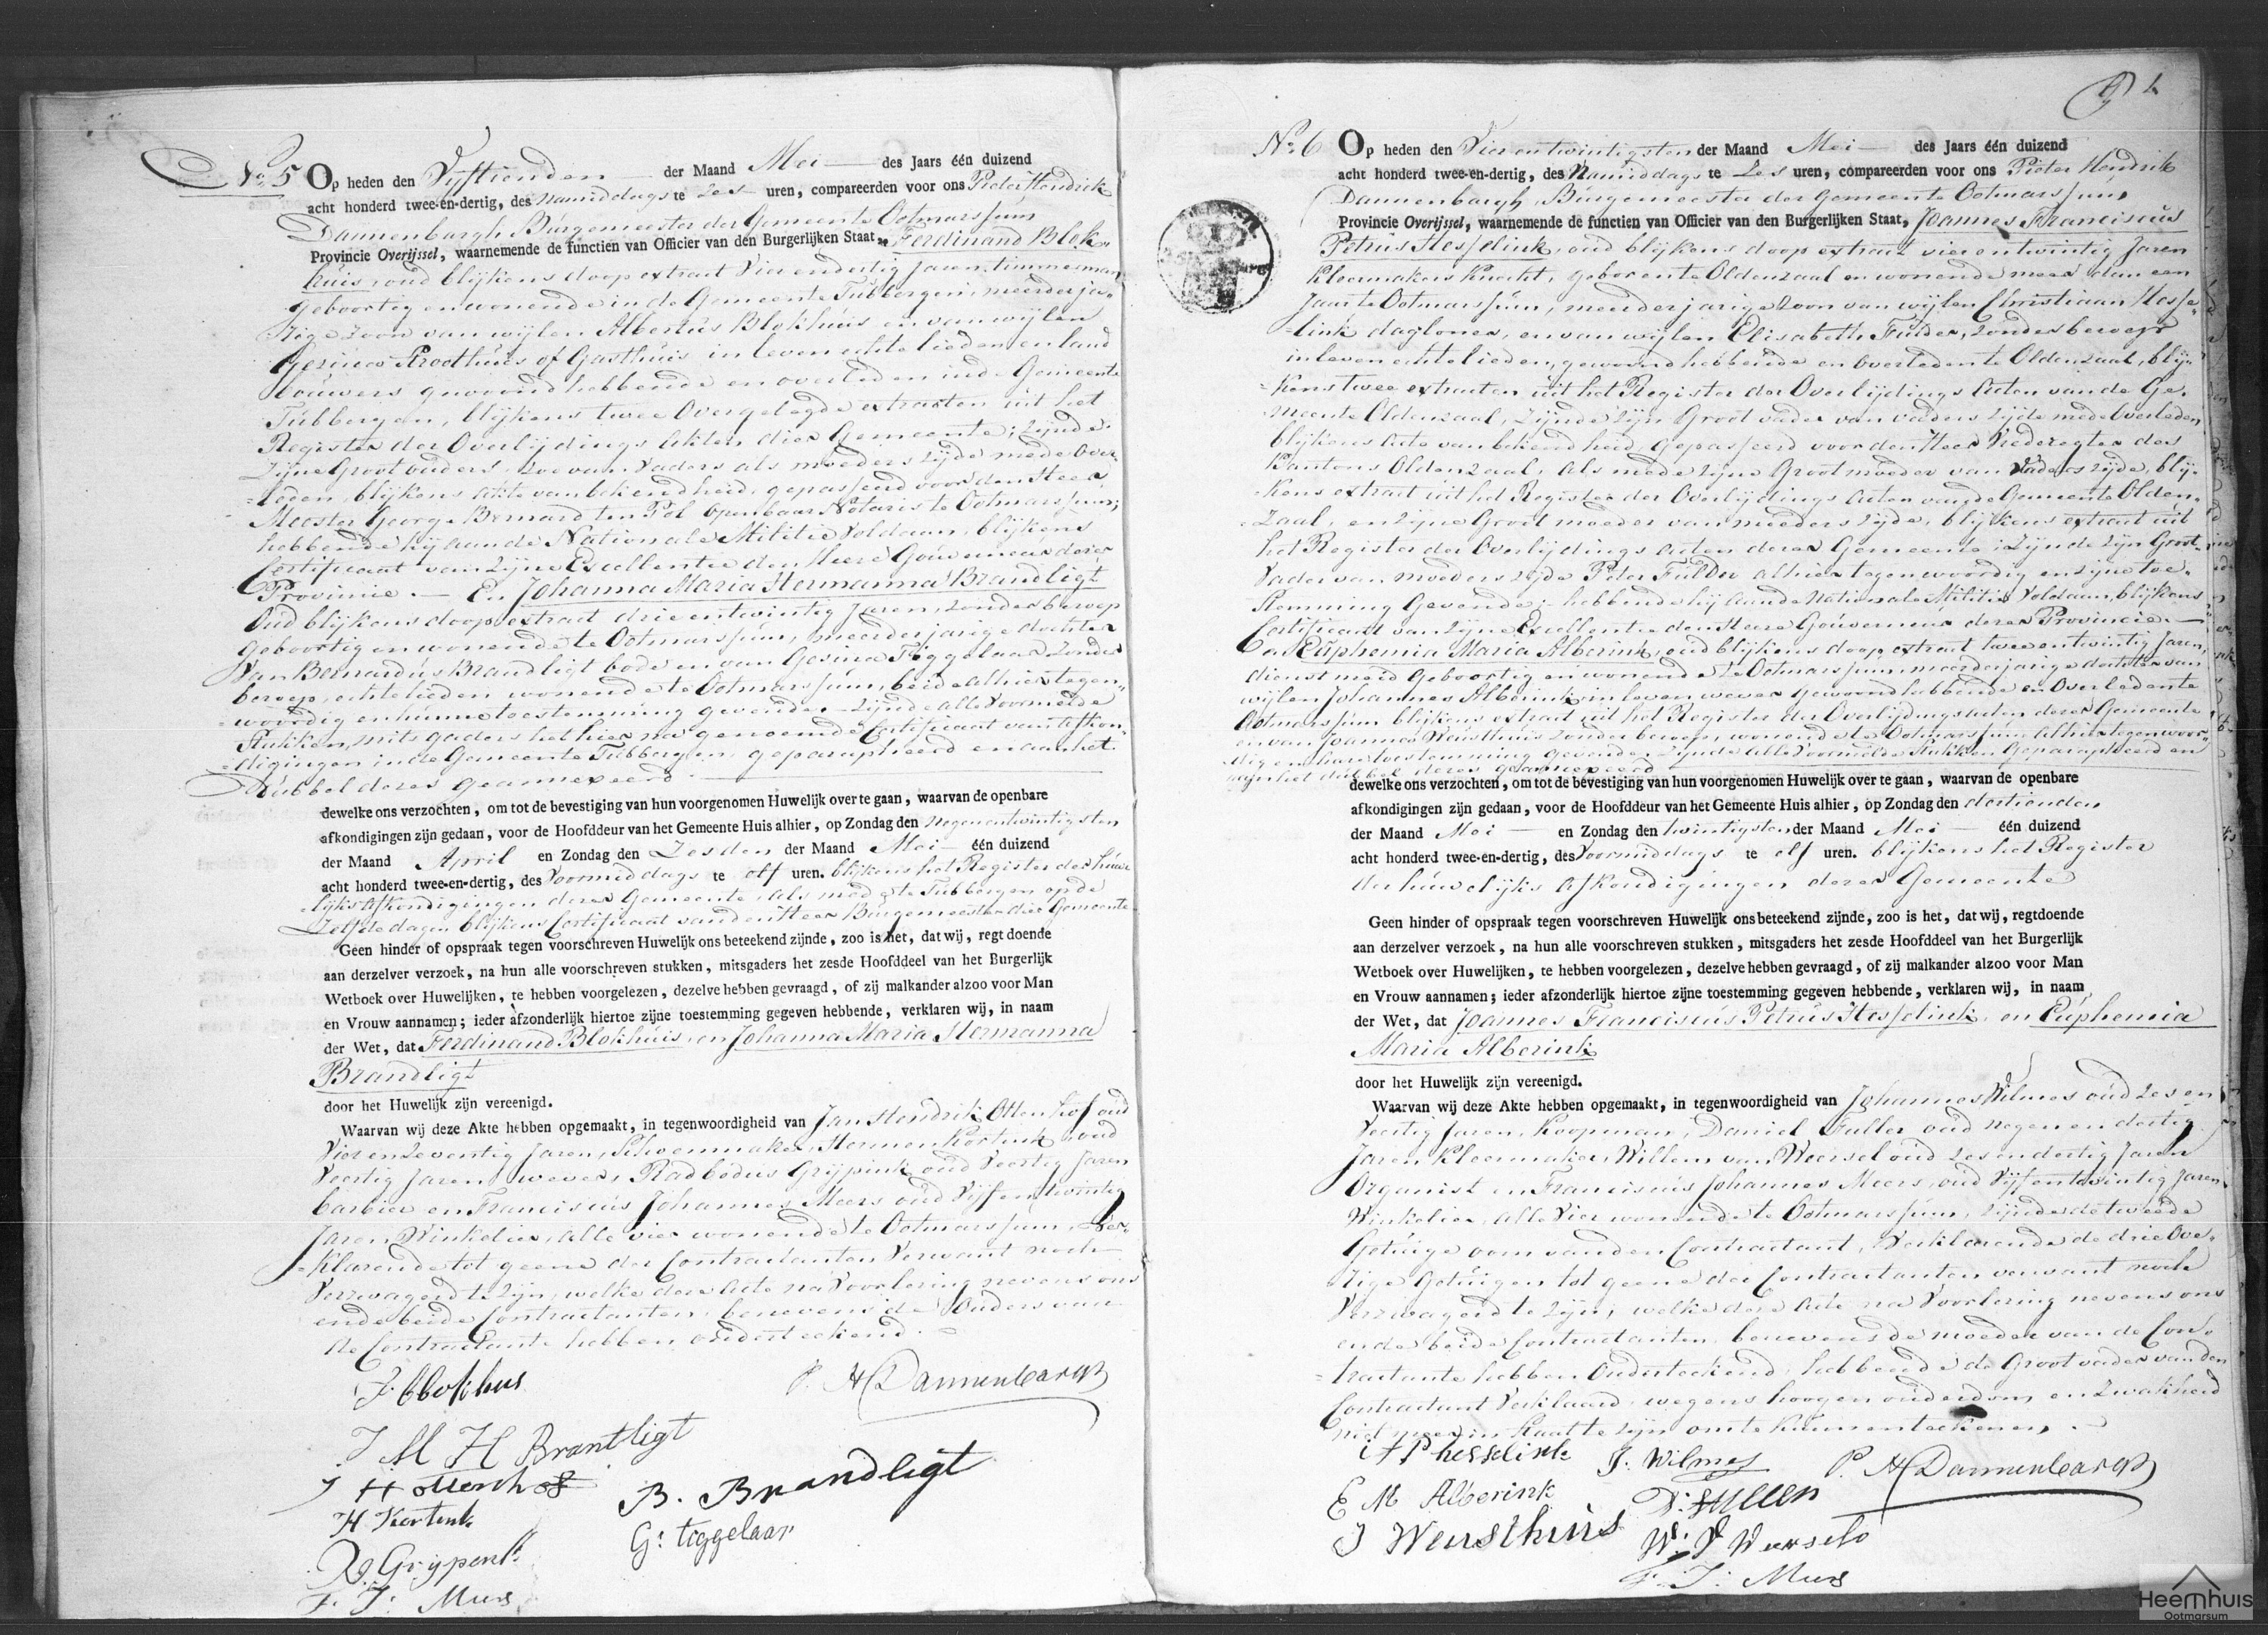 No 5 Op heden den Vijftienden der Maand Mei des Jaars één duizend
acht honderd twee-en-dertig, des namiddags te zes uren, compareerden voor ons Pieter Hendrik
Dannenbargh Burgemeester der Gemeente Ootmarssum
Provincie Overijssel, waarnemende de functien van Officier van den Burgerlijken Staat, Ferdinand Blok„
huis, oud blijkens doop extract Vier en dertig Jaren, timmerman
geboortig en wonende in de Gemeente Tubbergen, meerderja„
rige zoon van wijlen Albertus Blokhuis en van wijlen
Gezina Proothuis of Gasthuis in leven echte lieden en land
bouwers gewoond hebbende en overleden in de Gemeente
Tubbergen, blijkens twee Overgelegde extracten uit het
Register der Overlijdings akten dier Gemeente; zijnde
zijne Groot ouders zoo van Vaders als moeders zijde mede over
=leden, blijkens akte van bekendheid, gepasseerd voor den Heer
Meester George Bernard ten Pol openbaar Notaris te Ootmarssum;
hebbende hij aan de Nationale Militie Voldaan, blijkens
Certificaat van Zijne Excellentie den Heere Gouverneur dezer
Provincie. — En Johanna Maria Hermanna Brandligt
Oud blijkens doop extract drie en twintig Jaren, zonder beroep
geboortig en wonende te Ootmarssum, meerderjarige dochter
Van Bernardus Brandligt bode en van Gesina Tiggelaar zonder
beroep, echte lieden wonende te Ootmarssum, beide alhier tegen„
=woordig en hunne toestemming gevende. — zijnde alle Voormelde
Stukken, mits gaders het hier na genoemde Certificaat van afkon„
=digingen in de Gemeente Tubbergen geparapheerd en aan het
Dubbel dezer geannexeerd
dewelke ons verzochten, om tot de bevestiging van hun voorgenomen Huwelijk over te gaan, waarvan de openbare
afkondigingen zijn gedaan, voor de Hoofddeur van het Gemeente Huis alhier, op Zondag den negen en twintigsten
der Maand April en Zondag den Zesden der Maand Mei één duizend
acht honderd twee-en-dertig, des Voormiddags te elf uren. blijkens het Register der huwe
=lijks afkondigingen dezer Gemeente, als mede te Tubbergen op de
Zelfde dagen blijkens Certificaat van den Heer Burgemeester dier Gemeente
Geen hinder of opspraak tegen voorschreven Huwelijk ons beteekend zijnde, zoo is het, dat wij, regt doende
aan derzelver verzoek, na hun alle voorschreven stukken, mitsgaders het zesde Hoofddeel van het Burgerlijk
Wetboek over Huwelijken, te hebben voorgelezen, dezelve hebben gevraagd, of zij malkander alzoo voor Man
en Vrouw aannamen; ieder afzonderlijk hiertoe zijne toestemming gegeven hebbende, verklaren wij, in naam
der Wet, dat Ferdinand Blokhuis, en Johanna Maria Hermanna
Brandligt
door het Huwelijk zijn vereenigd.
Waarvan wij deze Akte hebben opgemaakt, in tegenwoordigheid van Jan Hendrik Ottenhof oud
Vier en Zeventig Jaren, Schoenmaker, Hermen Kortink, oud
Veertig Jaren, wever, Radbodus Grijpink oud Veertig Jaren
barbier en Franciscus Johannes Meers oud Vijf en twintig
Jaren Winkelier, alle vier wonende te Ootmarssum, Ver„
=klarende tot geene der Contractanten Verwant noch
Verzwagerd te zijn, welke deze Acte na Voorlezing nevens ons
en de beide Contractanten, benevens de Ouders van
de Contractante hebben onderteekend.
F. Blokhus
P. H Dannenbargh
J M H Brantligt
J H ottenhof
B. Brandligt
H Kortink
G: tiggelaar
R. Grijpenk
F. J: Meers
No 6 Op heden den Vier en twintigsten der Maand Mei des Jaars één duizend
acht honderd twee-en-dertig, des Namiddags te Zes uren, compareerden voor ons Pieter Hendrik
Dannenbargh, Burgemeester der Gemeente Ootmarssum,
Provincie Overijssel, waarnemende de functien van Officier van den Burgerlijken Staat, Joannes Franciscus
Petrus Hesselink, oud blijkens doop extract vier en twintig Jaren
Kleermakers Knecht, geboren te Oldenzaal en wonende meer dan een
Jaar te Ootmarssum, meerderjarige zoon van wijlen Christiaan Hesse„
=link dagloner, en van wijlen Elisabeth Fulder, zonder beroep
in leven echte lieden, gewoond hebbende en overleden te Oldenzaal, blij„
=kens twee extracten uit het Register der Overlijdings Acten van de Ge„
meente Oldenzaal, zijnde zijn Groot vader van vaders zijde mede Overleden
blijkens Acte van bekendheid gepasseerd voor den Heer Vrederegter des
Kantons Oldenzaal, als mede zijne Groot moeder van Vaders zijde, blij„
=kens extract uit het Register der Overlijdings Acten van de Gemeente Olden„
=zaal, en zijne Groot moeder van moeders zijde, blijkens extract uit
het Register der Overlijdings Acten dezer Gemeente; zijnde zijn Groot
Vader van moeders zijde Peter Fulder alhier tegenwoordig en zijne toe„
Stemming Gevende; hebbende hij aan de Nationale Militie Voldaan, blijkens
Certificaat van Zijne Excellentie den Heere Gouverneur dezer Provincie. —
En Euphemia Maria Alberink, oud blijkens doop extract twee en twintig Jaren,
dienstmeid Geboortig en wonende te Ootmarssum, meerderjarige dochter van
wijlen Johannes Alberink, in leven wever gewoond hebbende en Overleden te
Ootmarssum blijkens extract uit het Register der Overlijdings acten dezer Gemeente
en van Joannes Weusthuis zonder beroep, wonende te Ootmarssum alhier tegenwoor„
dig en hare toestemming gevende. zijnde alle Voormelde Stukken Geparapheerd en
aan het dubbel dezer geannexeerd
dewelke ons verzochten, om tot de bevestiging van hun voorgenomen Huwelijk over te gaan, waarvan de openbare
afkondigingen zijn gedaan, voor de Hoofddeur van het Gemeente Huis alhier, op Zondag den dertienden
der Maand Mei en Zondag den twintigsten der Maand Mei één duizend
acht honderd twee-en-dertig, des Voormiddags te elf uren. blijkens het Register
der huwelijks afkondigingen dezer Gemeente
Geen hinder of opspraak tegen voorschreven Huwelijk ons beteekend zijnde, zoo is het, dat wij, regtdoende
aan derzelver verzoek, na hun alle voorschreven stukken, mitsgaders het zesde Hoofddeel van het Burgerlijk
Wetboek over Huwelijken, te hebben voorgelezen, dezelve hebben gevraagd, of zij malkander alzoo voor Man
en Vrouw aannamen; ieder afzonderlijk hiertoe zijne toestemming gegeven hebbende, verklaren wij, in naam
der Wet, dat Joannes Franciscus Petrus Hesselink, en Euphemia
Maria Alberink
door het Huwelijk zijn vereenigd.
Waarvan wij deze Akte hebben opgemaakt, in tegenwoordigheid van Johannes Wilmes oud zes en
Veertig Jaren, Koopman, Daniel Fuller oud negen en dertig
Jaren Kleermaker, Willem van Weersel oud zes en dertig Jaren
Organist en Franciscus Johannes Meers, oud Vijf en twintig Jaren
Winkelier, alle Vier wonende te Ootmarssum, zijnde de tweede
Getuige oom van den Contractant, Verklarende de drie Ove„
rige Getuigen tot geene der Contractanten verwant noch
Verzwagerd te zijn, welke deze Acte na Voorlezing nevens ons
en de beide Contractanten, benevens de moeder van de Con„
=tractante hebben Onderteekend, hebbende de Grootvader van den
Contractant Verklaard, wegens hoogen ouderdom en Zwakheid
niet meer in Staat te zijn om te kunnen teekenen.
J F P hesselink
J. Wilmes
P. H Dannenbargh
E M Alberink
D: Fullen
J Weusthuis
W. V Weersel
F. J: Meers
Heemhuis
Ootmarsum